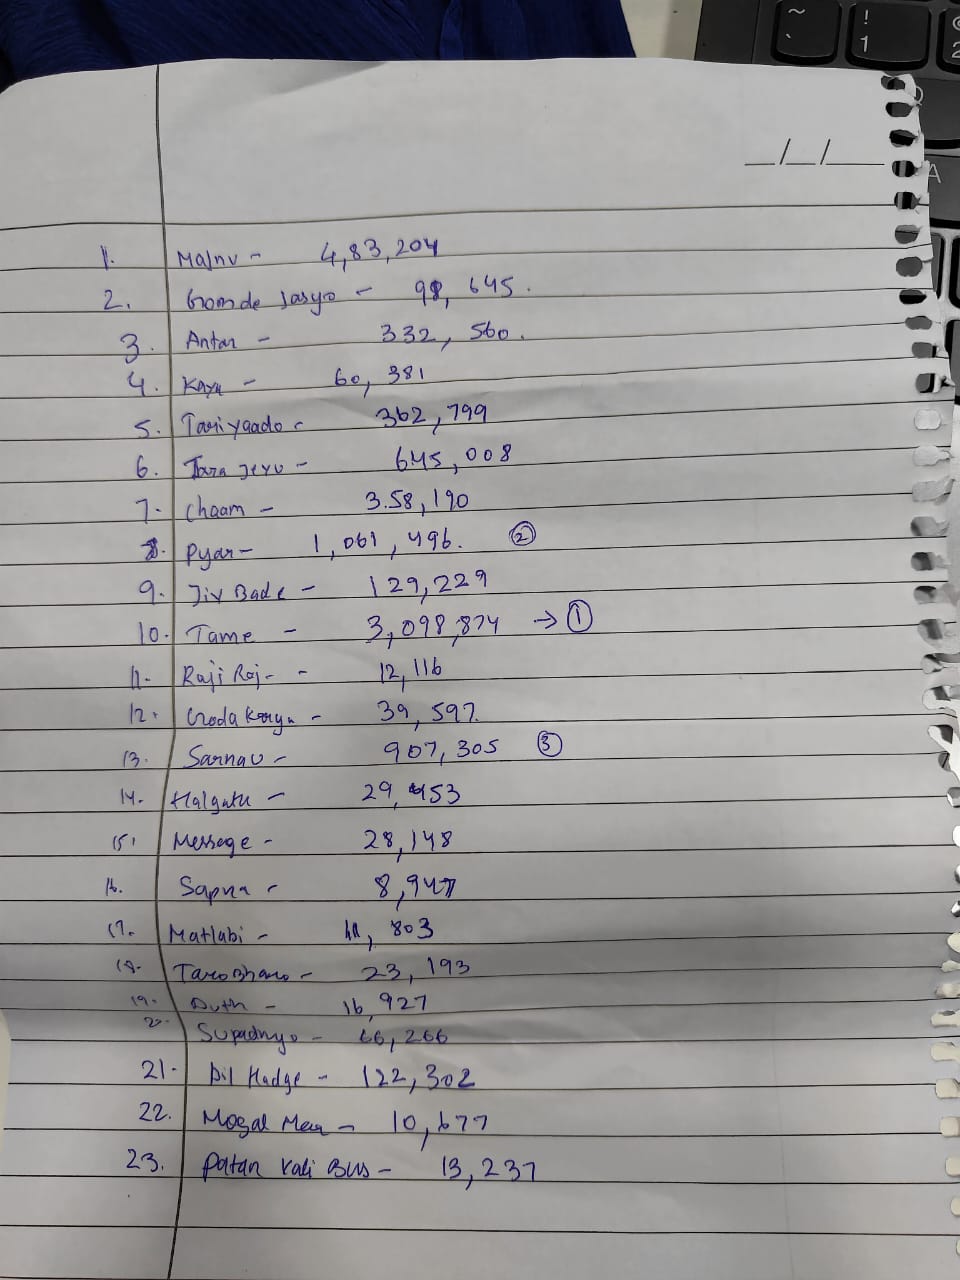 __/__/____
1. Majnu - 4,83,204
2. Gomde Jasyo - 98, 645.
3. Antar - 332, 560.
4. Kaya - 60, 381
5. Tariyaado - 362,799
6. Tara Jevu - 645,008
7. Chaam - 3.58,190
8. Pyar - 1,061,496. ②
9. Jiv Bade - 129,229
10. Tame - 3,098,874 → ①
11. Raji Roj - - 12,116
12. 39,597.
13. Sarnav - 907,305 ③
14. Halgatu - 29,453
15. Message - 28,148
16. Sapna - 8,947
17. Matlabi - 803
18. Taro Bharo - 23,193
19. - 16,927
20. Supadnyo - 66,266
21. Dil Hadge - 122,302
22. Mogal Maa - 10,677
23. Patan Vali Bus - 13,237